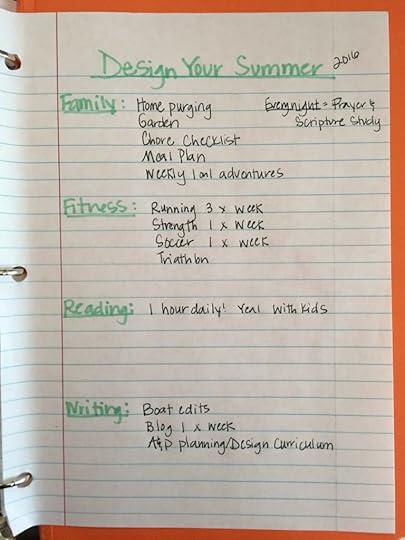 Design Your Summer 2016
Family: Home purging Everynight = Prayer &
Garden Scripture Study
Chore Checklist
Meal Plan
Weekly 1 on 1 adventures
Fitness: Running 3 x week
Strength 1 x week
Soccer 1 x week
Triathlon
Reading: 1 hour daily! Yea! With kids
Writing: Boat edits
Blog 1 x week
A&P planning/Design Curriculum